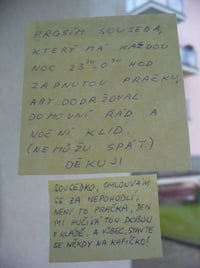 PROSÍM SOUSEDA,
KTERÝ MÁ KAŽDOU
NOC 23³⁰-0³⁰ HOD
ZAPNUTOU PRAČKU,
ABY DODRŽOVAL
DOMOVNÍ ŘÁD A
NOČNÍ KLID.
(NEMŮŽU SPÁT.)
DĚKUJI
SOUSEDKO, OMLOUVÁM
SE ZA NEPOHODLÍ,
NENÍ TO PRAČKA, JEN
MI HUČÍVÁ TOU DOBOU
V KLÁDĚ. A VŮBEC, STAVTE
SE NĚKDY NA KAFÍČKO!